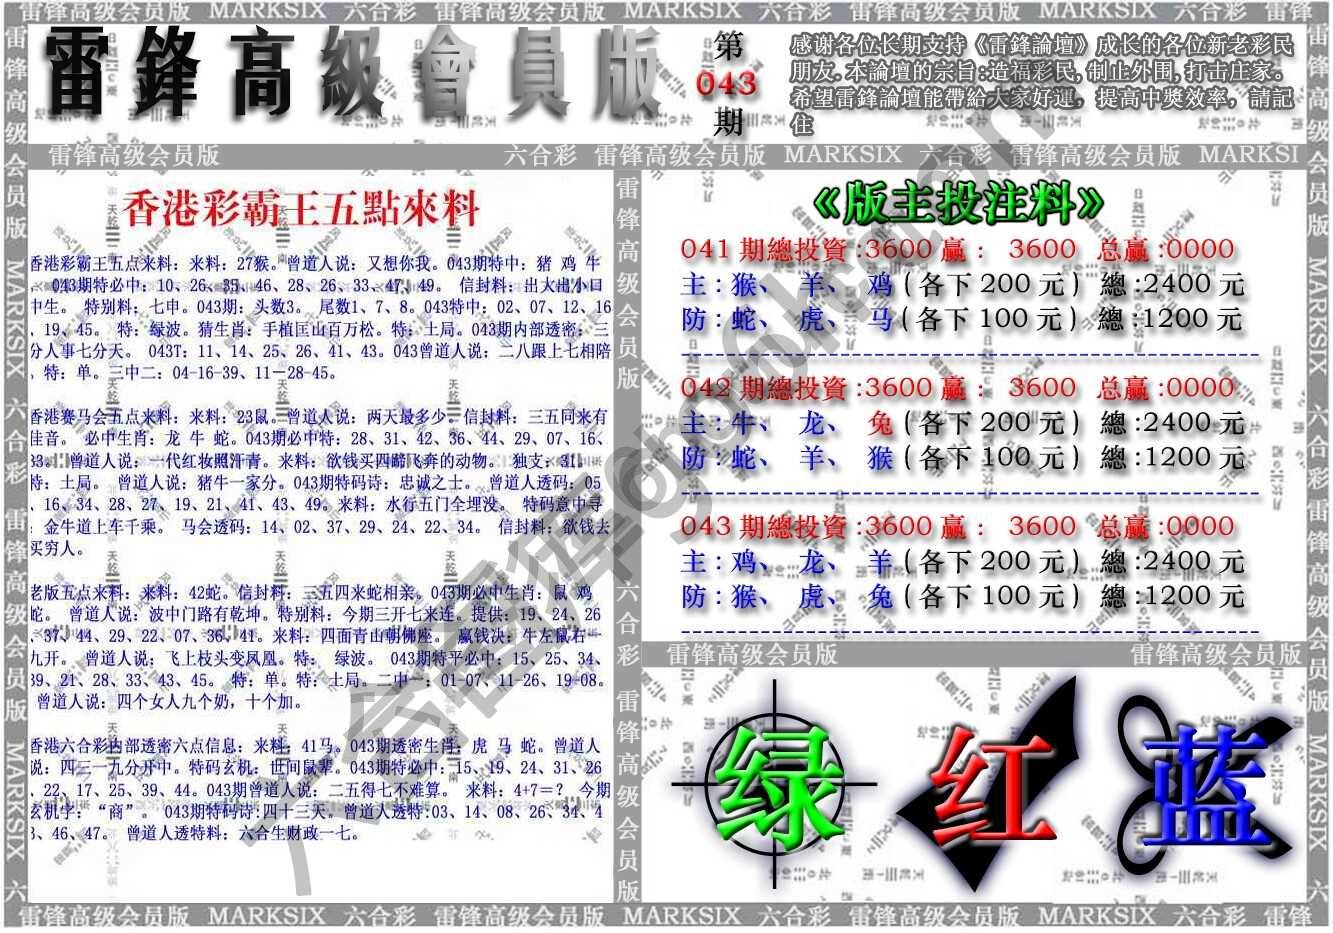 雷锋高级会员版 MARKSIX 六合彩 雷锋高级会员版 MARKSIX 六合彩 雷锋高级会员版 MARKSIX 六合彩 雷锋
雷鋒高級會員版
第
043
期
感谢各位长期支持《雷鋒論壇》成长的各位新老彩民
朋友.本論壇的宗旨:造福彩民,制止外围,打击庄家。
希望雷鋒論壇能帶給大家好運，提高中獎效率，請記
住
雷锋高级会员版 六合彩 雷锋高级会员版 MARKSIX 六合彩 雷锋高级会员版 MARKSI
香港彩霸王五點來料
香港彩霸王五点来料：来料：27猴。曾道人说：又想你我。043期特中：猪 鸡 牛
043期特必中：10、26、35、46、28、26、33、47、49。 信封料：出大出小口
中生。 特别料：七申。043期：头数3。 尾数1、7、8。043特中：02、07、12、16
、19、45。 特：绿波。猜生肖：手植匡山百万松。特：土局。043期内部透密：三
分人事七分天。 043T：11、14、25、26、41、43。043曾道人说：二八跟上七相陪
。特：单。三中二：04-16-39、11－28-45。
香港赛马会五点来料：来料：23鼠。曾道人说：两天最多少。信封料：三五同来有
佳音。 必中生肖：龙 牛 蛇。043期必中特：28、31、42、36、44、29、07、16、
33。 曾道人说：一代红妆照汗青。来料：欲钱买四蹄飞奔的动物。 独支：31。
特：土局。 曾道人说：猪牛一家分。043期特码诗：忠诚之士。 曾道人透码：05
、16、34、28、27、19、21、41、43、49。来料：水行五门全埋没。 特码意中寻
：金牛道上车千乘。 马会透码：14、02、37、29、24、22、34。 信封料：欲钱去
买穷人。
老版五点来料：来料：42蛇。信封料：三五四来蛇相亲。043期必中生肖：鼠 鸡
蛇。 曾道人说：波中门路有乾坤。特别料：今期三开七来连。提供：19、24、26
、37、44、29、22、07、36、41。来料：四面青山朝佛座。 赢钱决：牛左鼠右一
九开。 曾道人说：飞上枝头变凤凰。特： 绿波。 043期特平必中：15、25、34、
39、21、28、33、43、45。 特：单。特：土局。二中一：01-07、11-26、19-08。
曾道人说：四个女人九个奶，十个加。
香港六合彩内部透密六点信息：来料：41马。043期透密生肖：虎 马 蛇。曾道人
说：四三一九分开中。特码玄机：世间鼠辈。043期特必中：15、19、24、31、26
、22、17、25、39、44。043期曾道人说：二五得七不难算。 来料：4+7＝？ 今期
玄机字：“商”。 043期特码诗:四十三天。曾道人透特:03、14、08、26、34、4
3、46、47。 曾道人透特料：六合生财政一七。
《版主投注料》
041 期總投資:3600 贏： 3600 总赢:0000
主:猴、 羊、 鸡(各下 200 元) 總:2400 元
防:蛇、 虎、 马(各下 100 元) 總:1200 元
042 期總投資:3600 贏： 3600 总赢:0000
主:牛、 龙、 兔(各下 200 元) 總:2400 元
防:蛇、 羊、 猴(各下 100 元) 總:1200 元
043 期總投資:3600 贏： 3600 总赢:0000
主:鸡、 龙、 羊(各下 200 元) 總:2400 元
防:猴、 虎、 兔(各下 100 元) 總:1200 元
雷锋高级会员版 雷锋高级会员版
绿 红 蓝
雷锋高级会员版 MARKSIX 六合彩 雷锋高级会员版 MARKSIX 六
雷锋高级会员版 六合彩 雷锋高级会员版
雷锋高级会员版 MARKSIX 六合彩 雷锋高级会员版 MARKSIX 六
雷锋高级会员版 MARKSIX 六合彩 雷锋高级会员版 MARKSIX 六合彩 雷锋高级会员版 MARKSIX 六合彩 雷锋